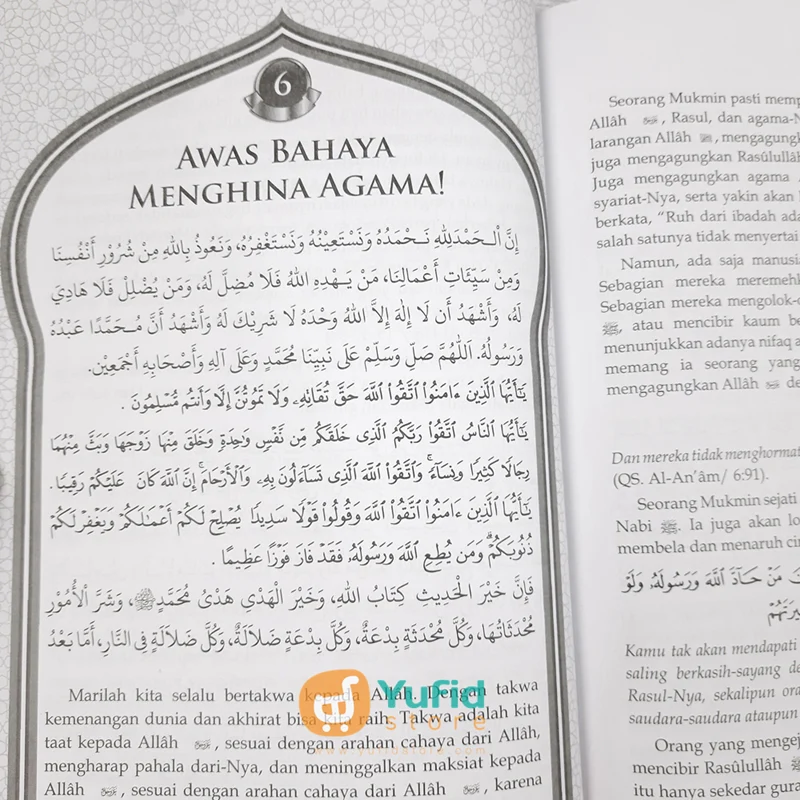 6
AWAS BAHAYA
MENGHINA AGAMA!
إِنَّ الْـحَمْدَلِلهِ نَـحْمَدُهُ وَنَسْتَعِيْنُهُ وَنَسْتَغْفِرُهُ، وَنَعُوذُ بِاللهِ مِنْ شُرُوْرِ أَنْفُسِنَا
وَمِنْ سَيِّئَاتِ أَعْمَالِنَا، مَنْ يَـهْدِهِ اللهُ فَلَا مُضِلَّ لَهُ، وَمَنْ يُضْلِلْ فَلَا هَادِيَ
لَهُ، وَأَشْهَدُ أَن لَا إِلَهَ إِلاَّ اللهُ وَحْدَهُ لَا شَرِيْكَ لَهُ وَأَشْهَدُ أَنَّ مُـحَمَّدًا عَبْدُهُ
وَرَسُولُهُ. اَللَّهُمَّ صَلِّ وَسَلِّمْ عَلَى نَبِيِّنَا مُحَمَّدٍ وَعَلَى آلِهِ وَأَصْحَابِهِ أَجْمَعِيْنَ.
يَٰٓأَيُّهَا ٱلَّذِينَ ءَامَنُوا۟ ٱتَّقُوا۟ ٱللَّهَ حَقَّ تُقَاتِهِۦ وَلَا تَمُوتُنَّ إِلَّا وَأَنتُم مُّسْلِمُونَ .
يَٰٓأَيُّهَا ٱلنَّاسُ ٱتَّقُوا۟ رَبَّكُمُ ٱلَّذِى خَلَقَكُم مِّن نَّفْسٍ وَٰحِدَةٍ وَخَلَقَ مِنْهَا زَوْجَهَا وَبَثَّ مِنْهُمَا
رِجَالًا كَثِيرًا وَنِسَآءً ۚ وَٱتَّقُوا۟ ٱللَّهَ ٱلَّذِى تَسَآءَلُونَ بِهِۦ وَٱلْأَرْحَامَ ۚ إِنَّ ٱللَّهَ كَانَ عَلَيْكُمْ رَقِيبًا .
يَٰٓأَيُّهَا ٱلَّذِينَ ءَامَنُوا۟ ٱتَّقُوا۟ ٱللَّهَ وَقُولُوا۟ قَوْلًا سَدِيدًا يُصْلِحْ لَكُمْ أَعْمَٰلَكُمْ وَيَغْفِرْ لَكُمْ
ذُنُوبَكُمْ ۗ وَمَن يُطِعِ ٱللَّهَ وَرَسُولَهُۥ فَقَدْ فَازَ فَوْزًا عَظِيمًا .
فَإِنَّ خَيْرَ الْحَدِيثِ كِتَابُ اللهِ، وَخَيْرَ الْهَدْيِ هَدْيُ مُحَمَّدٍ ﷺ، وَشَرَّ الْأُمُوْرِ
مُحْدَثَاتُهَا، وَكُلَّ مُحْدَثَةٍ بِدْعَةٌ، وَكُلَّ بِدْعَةٍ ضَلاَلَةٌ، وَكُلَّ ضَلاَلَةٍ فِي النَّارِ، أَمَّا بَعْدُ
Marilah kita selalu bertakwa kepada Allâh. Dengan takwa
kemenangan dunia dan akhirat bisa kita raih. Takwa adalah kita
taat kepada Allâh , sesuai dengan arahan cahaya dari Allâh,
mengharap pahala dari-Nya, dan meninggalkan maksiat kepada
Allâh , sesuai dengan arahan cahaya dari Allâh , karena
Yufid
store
www.yufidstore.com
Seorang Mukmin pasti
Allâh , Rasul, dan agama-
larangan Allâh , mengagungk
juga mengagungkan Rasûlullâh
Juga mengagungkan agama
syariat-Nya, serta yakin akan
berkata, “Ruh dari ibadah ada
salah satunya tidak menyertai
Namun, ada saja manusia
Sebagian mereka meremehk
Sebagian mereka mengolok-o
ﷺ, atau mencibir kaum be
menunjukkan adanya nifaq a
memang ia seorang yang
mengagungkan Allâh de
Dan mereka tidak menghormat
(QS. Al-An’âm/ 6:91).
Seorang Mukmin sejati
Nabi ﷺ. Ia juga akan lo
membela dan menaruh cin
مَنْ حَآدَّ ٱللَّهَ وَرَسُولَهُۥ وَلَوْ
Kamu tak akan mendapati
saling berkasih-sayang de
Rasul-Nya, sekalipun ora
saudara-saudara ataupun
Orang yang mengej
mencibir Rasûlullâh ﷺ
itu hanya sekedar gura